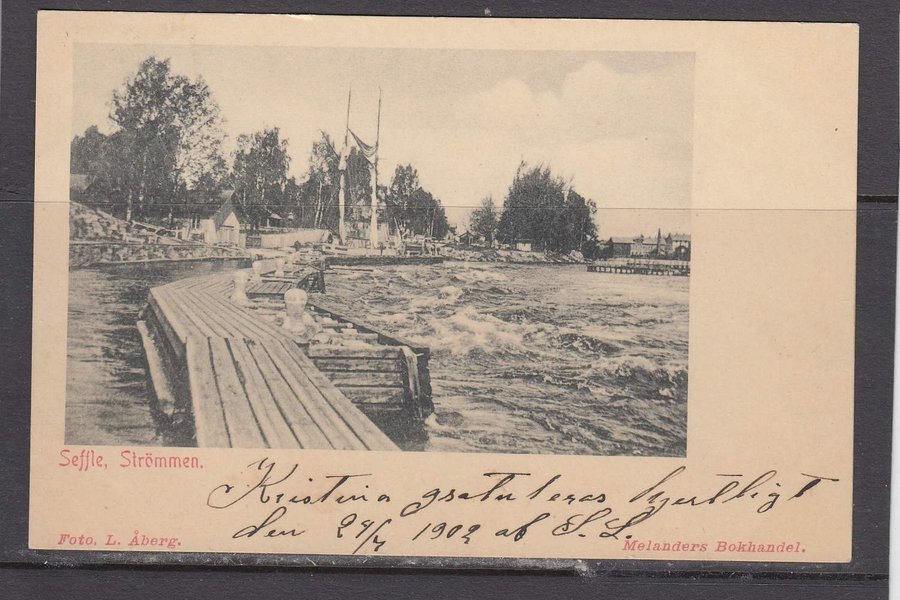 Seffle, Strömmen.
Kristina gratuleras hjertligt
den 24/7 1902 af S. L.
Foto. L. Åberg.
Melanders Bokhandel.